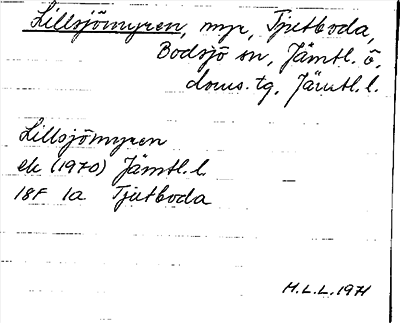 Lillsjömyren, myr, Tjutboda,
Bodsjö sn, Jämtl. ö.
doms. tg, Jämtl. l.
Lillsjömyren
ek (1970) Jämtl. l.
18F 1a Tjutboda
H.L.L. 1971